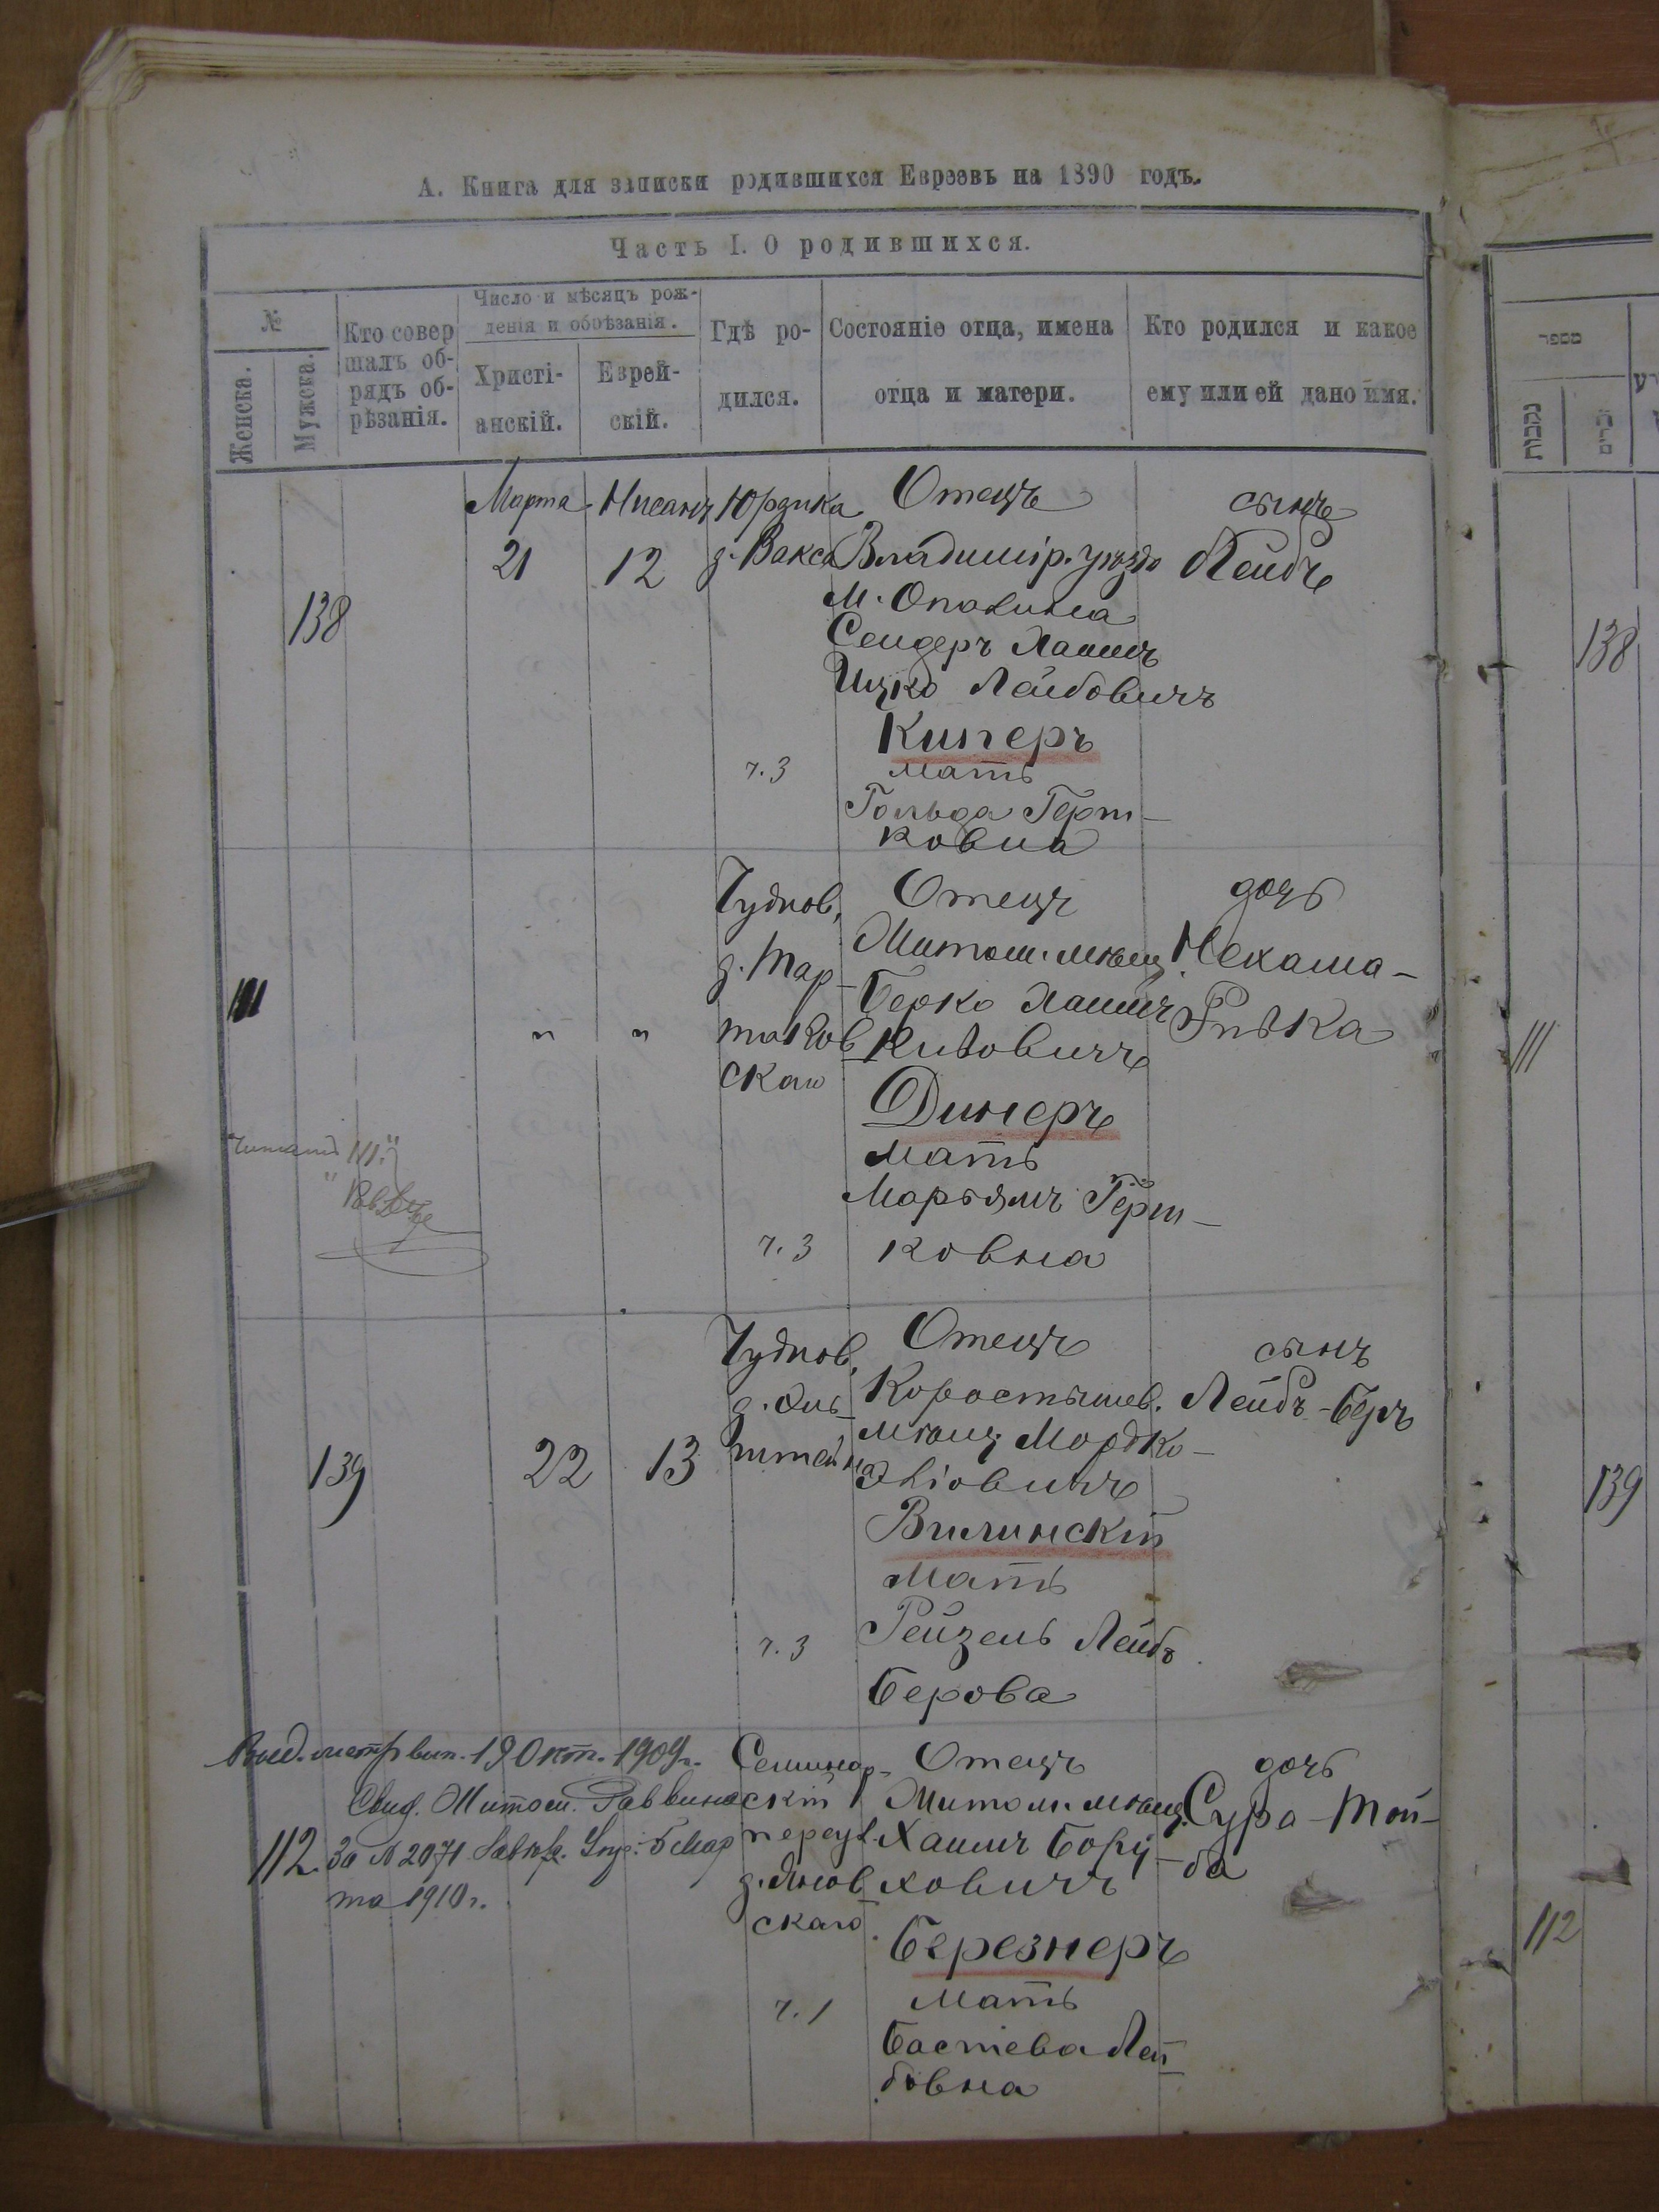 А. Книга для записки родившихся Евреевъ на 1890 годъ.
Часть I. О родившихся.
№
Женска.
Мужска.
Кто совер
шалъ об-
рядъ об-
рѣзанія.
Число и мѣсяцъ рож-
денія и обрѣзанія.
Христі-
анскій.
Еврей-
скій.
Гдѣ ро-
дился.
Состояніе отца, имена
отца и матери.
Кто родился и какое
ему или ей дано имя.
138
Марта
21
Нисанъ
12
Юрдика
д. Вакса
ч. 3
Отецъ
Владимір. уѣзда
М. Опалина
Сендеръ Хаимъ
Ицко Лейбовичъ
Киперъ
мать
Гольда Герш-
ковна
сынъ
Лейбъ
111
"
"
Чуднов.
д. Тар-
таков
скаго
ч. 3
Отецъ
Житом. мѣщ.
Берко Хаимъ
Кивовичъ
Динеръ
мать
Марьямъ Герш-
ковна
дочь
Нехама-
Ривка
читать 111."
139
22
13
Чуднов.
д. Эп-
штейна
ч. 3
Отецъ
Коростышев.
мѣщ. Мордко-
Эліовичъ
Вилинскій
мать
Рейзель Лейбъ
Берова
сынъ
Лейбъ-Беръ
Выд. метр. вып. 19 Окт. 1909 г.
Свид. Житом. Раввина
за № 2071
5 Мар
та 1910 г.
112
Семинар-
скій
переул.
скаго
ч. 1
Отецъ
Житом. мѣщ.
Хаимъ Бору-
ховичъ
Березнеръ
мать
Бастева Лей-
бовна
дочь
Сура-Той-
ба
מספר
נקבות
זכרים
138
111
139
112